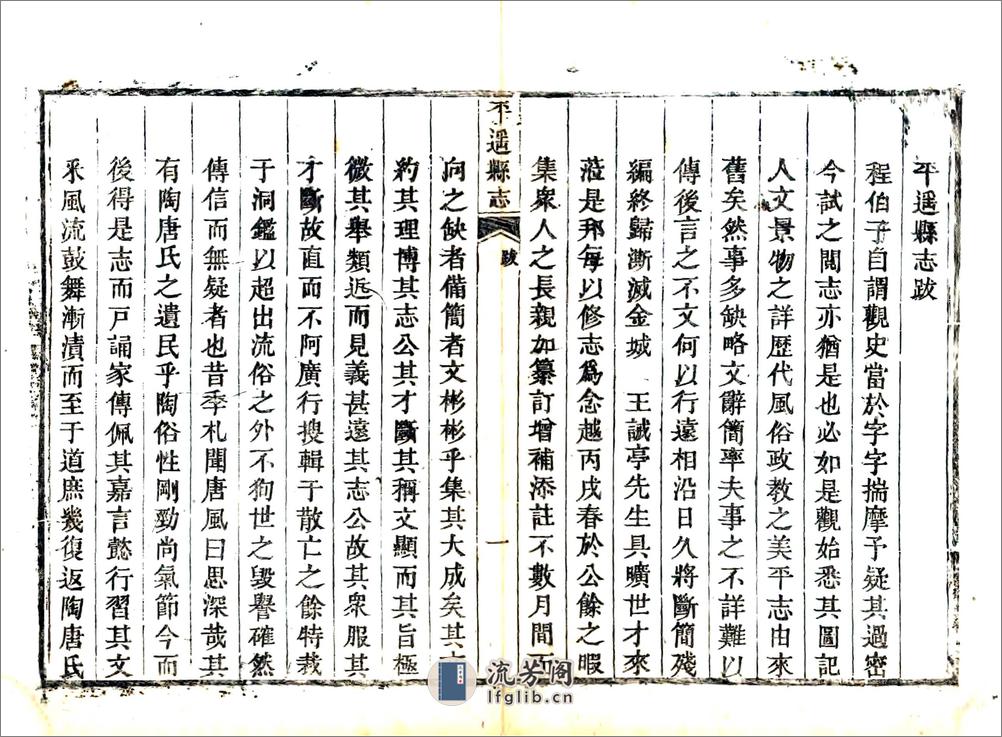 平遥縣志跋
程伯子自謂觀史當於字字揣摩予疑其過密
今試之閱志亦猶是也必如是觀始悉其圖記
人文景物之詳歷代風俗政教之美平志由來
舊矣然事多缺略文辭簡率夫事之不詳難以
傳後言之不文何以行遠相沿日久將斷簡殘
編終歸澌滅金城　王誠亭先生具曠世才來
蒞是邦每以修志爲念越丙戌春於公餘之暇
集衆人之長親加纂訂增補添註不數月間
平遥縣志
跋
一
向之缺者備簡者文彬彬乎集其大成矣其
約其理博其志公其才斷其稱文顯而其旨極
微其舉類近而見義甚遠其志公故其衆服其
才斷故直而不阿廣行搜輯于散亡之餘特裁
于洞鑑以超出流俗之外不狥世之毀譽確然
傳信而無疑者也昔季札聞唐風曰思深哉其
有陶唐氏之遺民乎陶俗性剛勁尚氣節今而
後得是志而戸誦家傳佩其嘉言懿行習其文
釆風流鼓舞漸漬而至于道庶幾復返陶唐氏
流芳阁
lfglib.cn